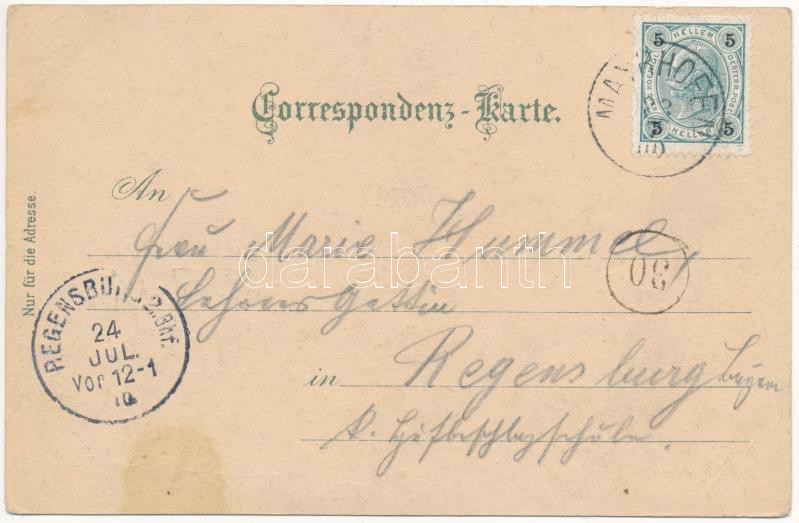 5 HELLER 5
5 HELLER 5
MAYRHOFEN
Correspondenz-Karte.
An
Frau Marie Hummel,
Lehrers Gattin
in Regensburg Bayern
k. Hufbeschlagschule.
Nur für die Adresse.
30
REGENSBURG 2. Bhf.
24
JUL.
Vor 12-1
darabanth